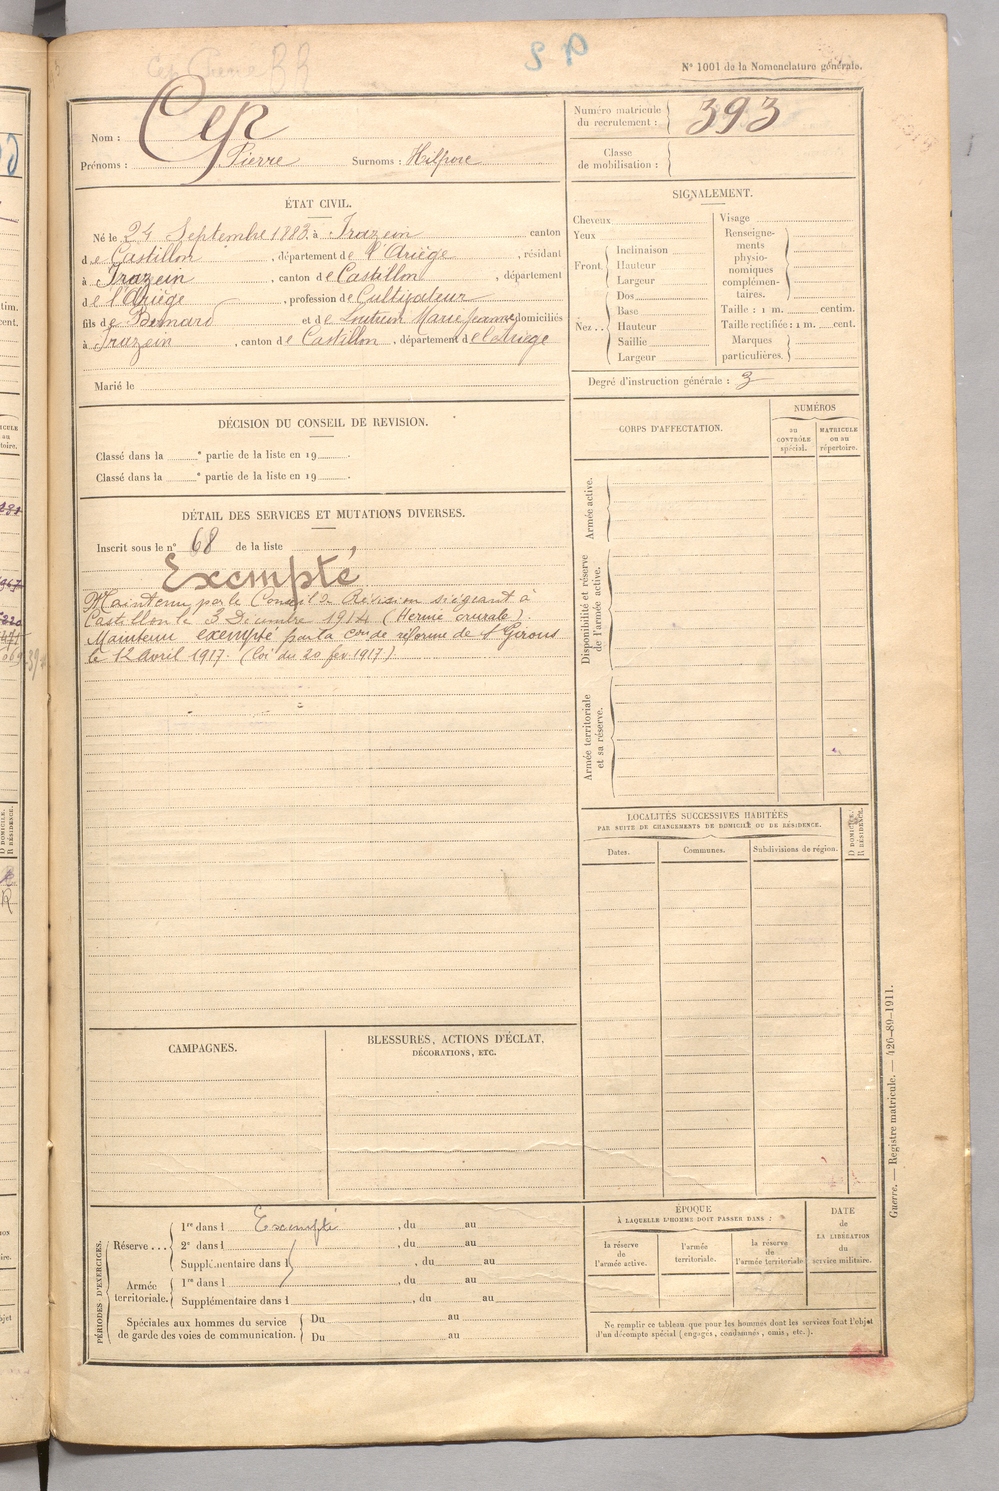 N° 1001 de la Nomenclature générale.
Nom : Cep
Prénoms : Pierre Surnoms : Hilpore
Numéro matricule du recrutement : 393
Classe de mobilisation :
ÉTAT CIVIL.
Né le 24 Septembre 1883, à Irazein canton
de Castillon, département de l'Ariège, résidant
à Irazein, canton de Castillon, département
de l'Ariège, profession de Cultivateur
fils de Bernard et de Marie Jeanne domiciliés
à Irazein, canton de Castillon, département de l'Ariège
Marié le
SIGNALEMENT.
Cheveux
Yeux
Front. Inclinaison
Hauteur
Largeur
Nez.. Dos
Base
Hauteur
Saillie
Largeur
Visage
Renseignements physionomiques complémentaires.
Taille : 1 m. centim.
Taille rectifiée : 1 m. cent.
Marques particulières.
Degré d'instruction générale : 3
DÉCISION DU CONSEIL DE REVISION.
Classé dans la e partie de la liste en 19 .
Classé dans la e partie de la liste en 19 .
DÉTAIL DES SERVICES ET MUTATIONS DIVERSES.
Inscrit sous le n° 68 de la liste
Exempté
Maintenu par le Conseil de Révision siégeant à
Castillon le 3 Décembre 1914 (Hernie crurale).
Maintenu exempté par la con de réforme de St Girons
le 12 Avril 1917. (Loi du 20 fev 1917)
CORPS D'AFFECTATION.
NUMÉROS
DU CONTRÔLE spécial.
MATRICULE ou au répertoire.
Armée active.
Disponibilité et réserve de l'armée active.
Armée territoriale et sa réserve.
LOCALITÉS SUCCESSIVES HABITÉES
PAR SUITE DE CHANGEMENTS DE DOMICILE OU DE RÉSIDENCE.
Dates.
Communes.
Subdivisions de région.
D DOMICILE.
R RÉSIDENCE.
CAMPAGNES.
BLESSURES, ACTIONS D'ÉCLAT,
DÉCORATIONS, ETC.
PÉRIODES D'EXERCICES.
Réserve... 1re dans l Exempté, du au
2e dans l , du au
Supplémentaire dans l , du au
Armée territoriale. 1re dans l , du au
Supplémentaire dans l , du au
Spéciales aux hommes du service Du au
de garde des voies de communication. Du au
ÉPOQUE
À LAQUELLE L'HOMME DOIT PASSER DANS :
la réserve de l'armée active.
l'armée territoriale.
la réserve de l'armée territoriale
DATE de LA LIBÉRATION du service militaire.
Ne remplir ce tableau que pour les hommes dont les services font l'objet
d'un décompte spécial (engagés, condamnés, omis, etc.).
Guerre. — Registre matricule. — 426-89-1911.